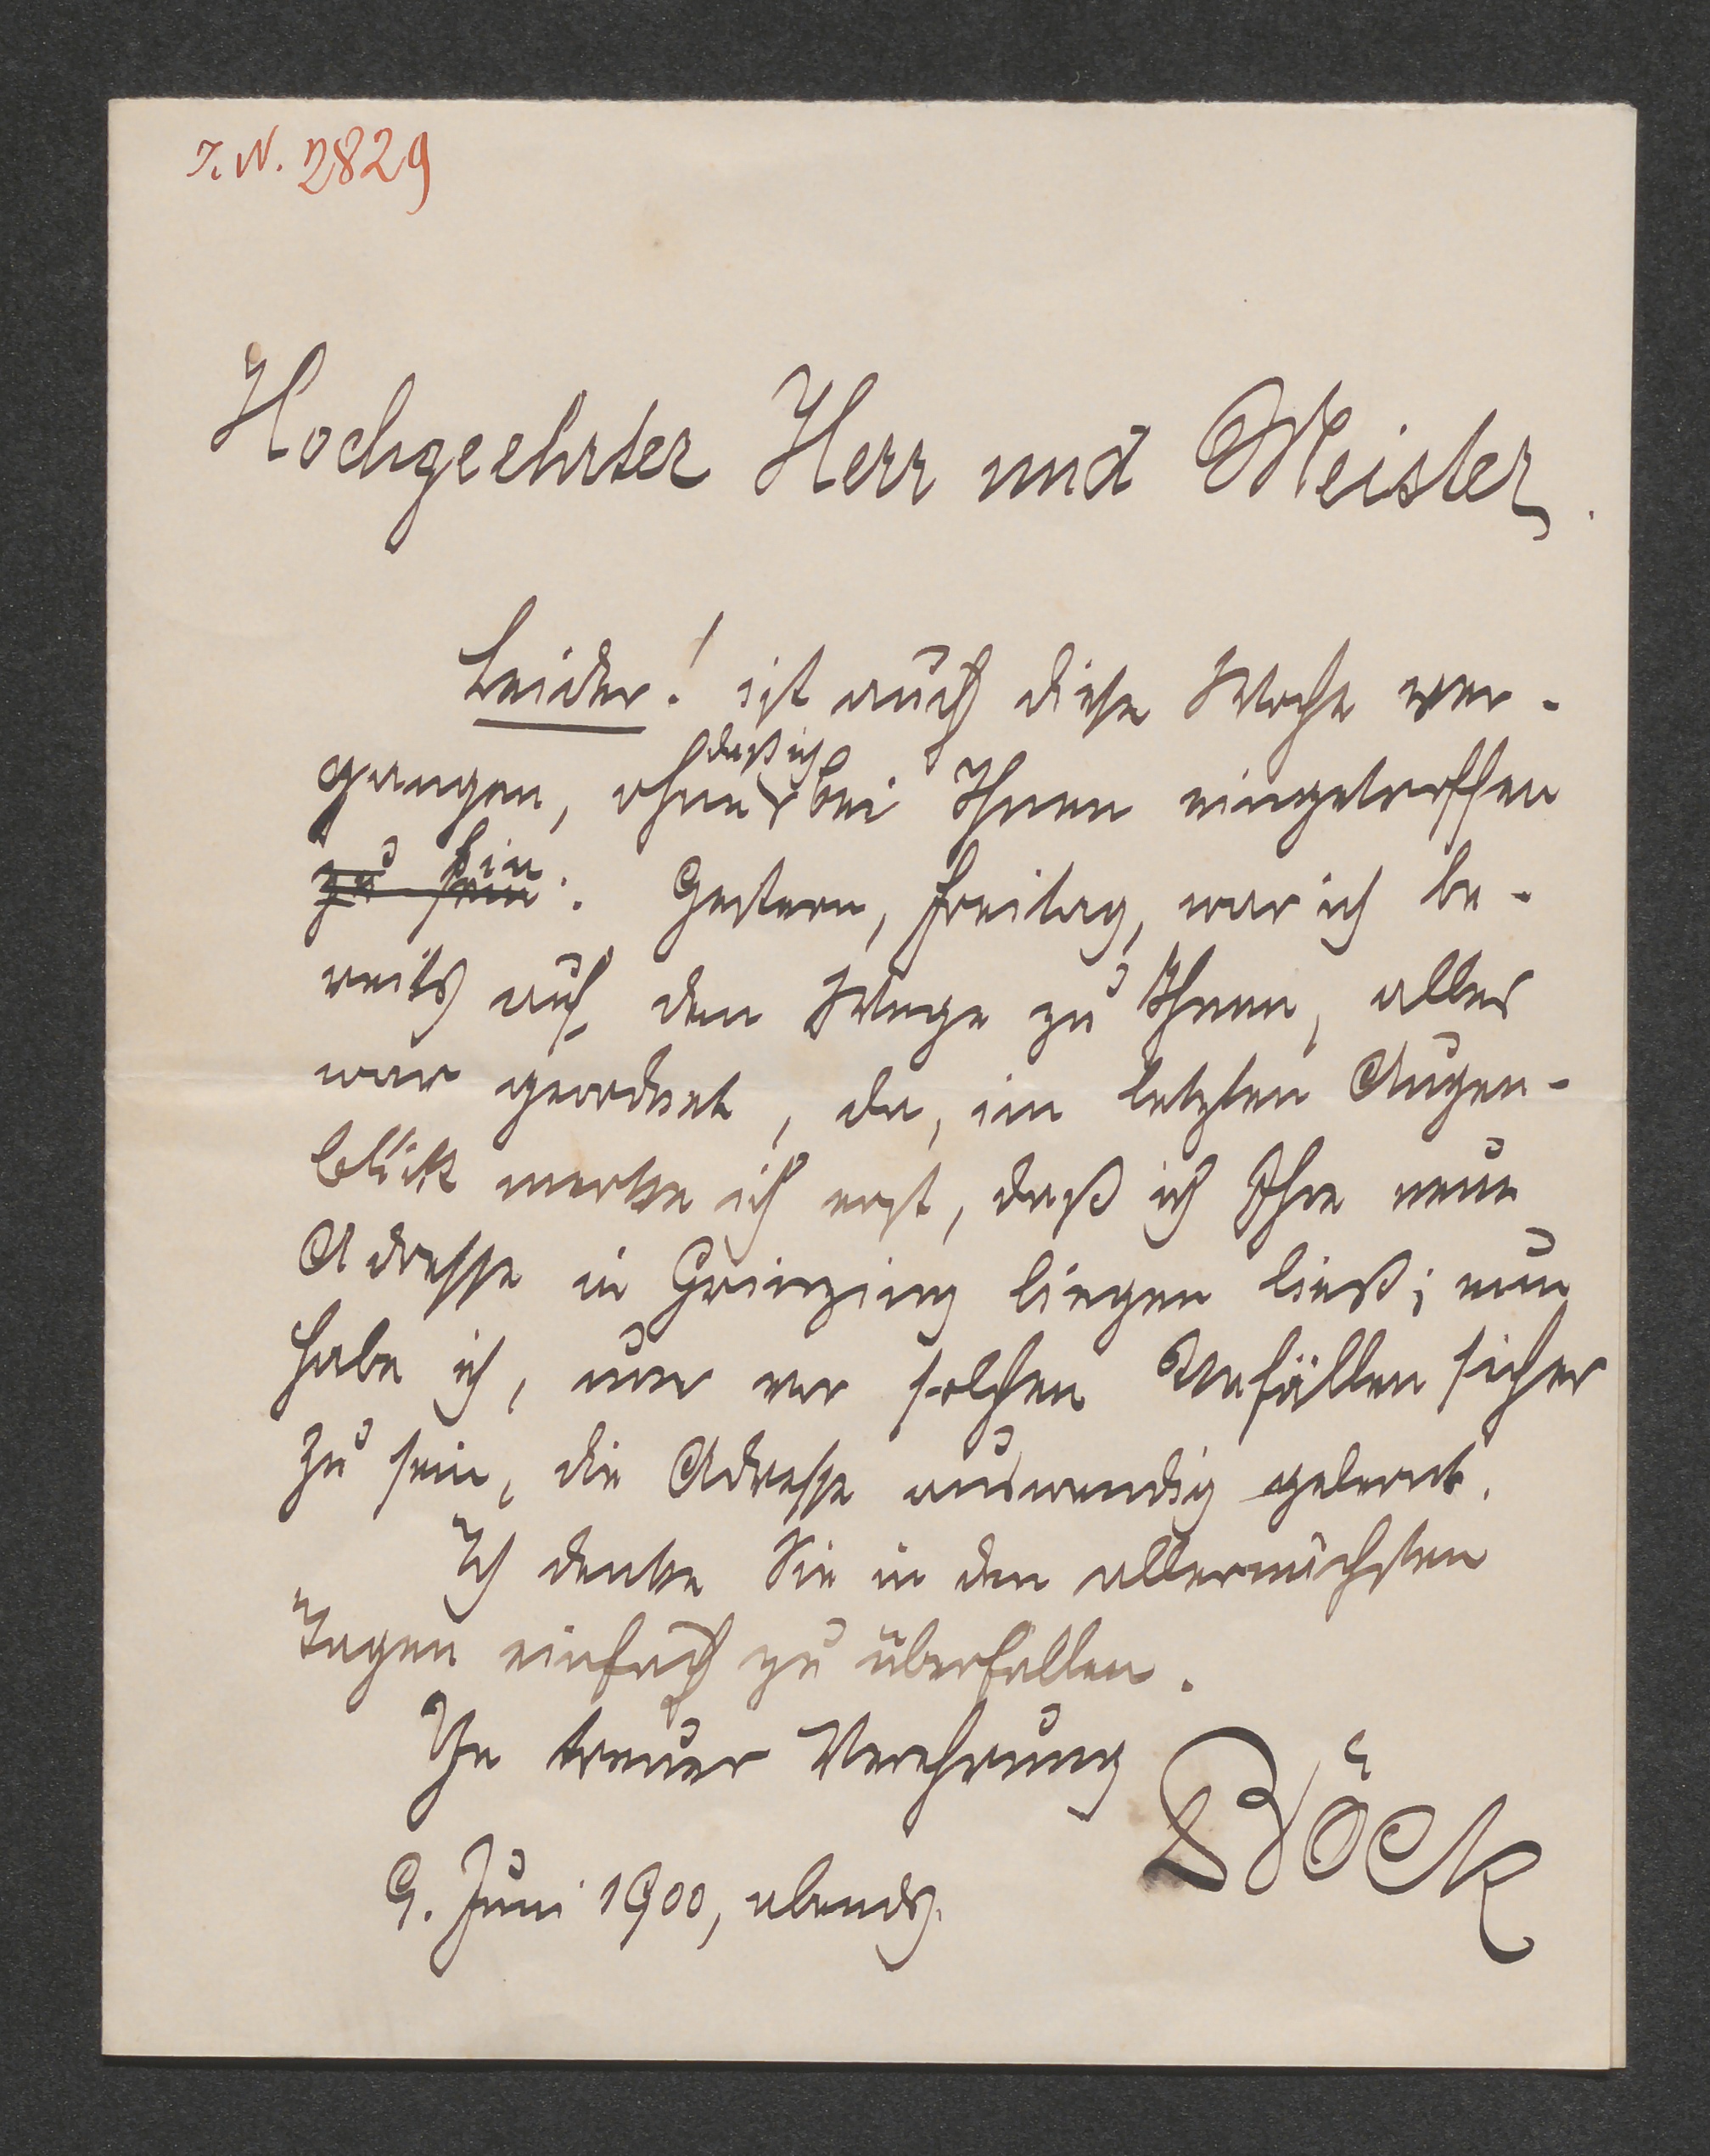 I. N. 2829
Hochgeehrter Herr und Meister.
Leider! ist auch diese Woche ver-
gangen, ohne daß ich bei Ihnen eingetroffen
zu sein bin. Gestern, Freitag, war ich be-
reits auf dem Wege zu Ihnen, alles
war geordnet, da, im letzten Augen-
blick merke ich erst, daß ich Ihre neue
Adresse in Grinzing liegen ließ; nun
habe ich, um vor solchen Unfällen sicher
zu sein, die Adresse auswendig gelernt.
Ich denke Sie in den allernächsten
Tagen einfach zu überfallen.
In treuer Verehrung
Böck
9. Juni 1900, abends.